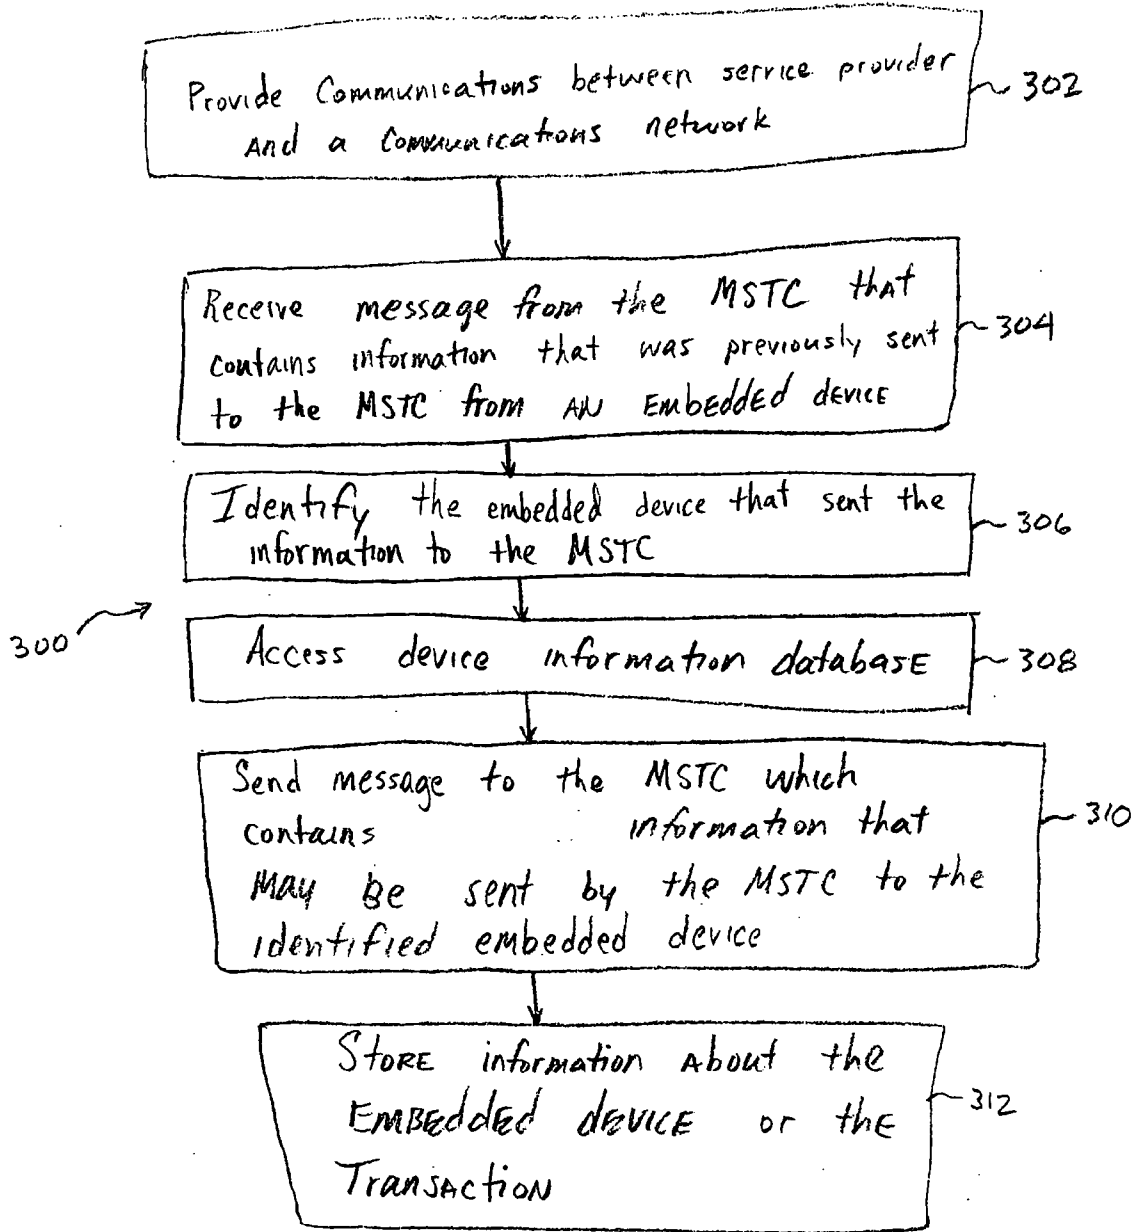 Provide Communications between service provider
302
And a Communications network
Receive message from the MSTC that
contains information that was previously sent
304
to the MSTC from AN EmbEddEd dEVICE
Identify the embedded device that sent the
306
information to the MSTC
300
Access device information databasE
308
Send message to the MSTC which
contains information that
310
May Be sent by the MSTC to the
identified embedded device
StoRE information About the
EMBEddEd dEVICE or thE
312
TransActioN